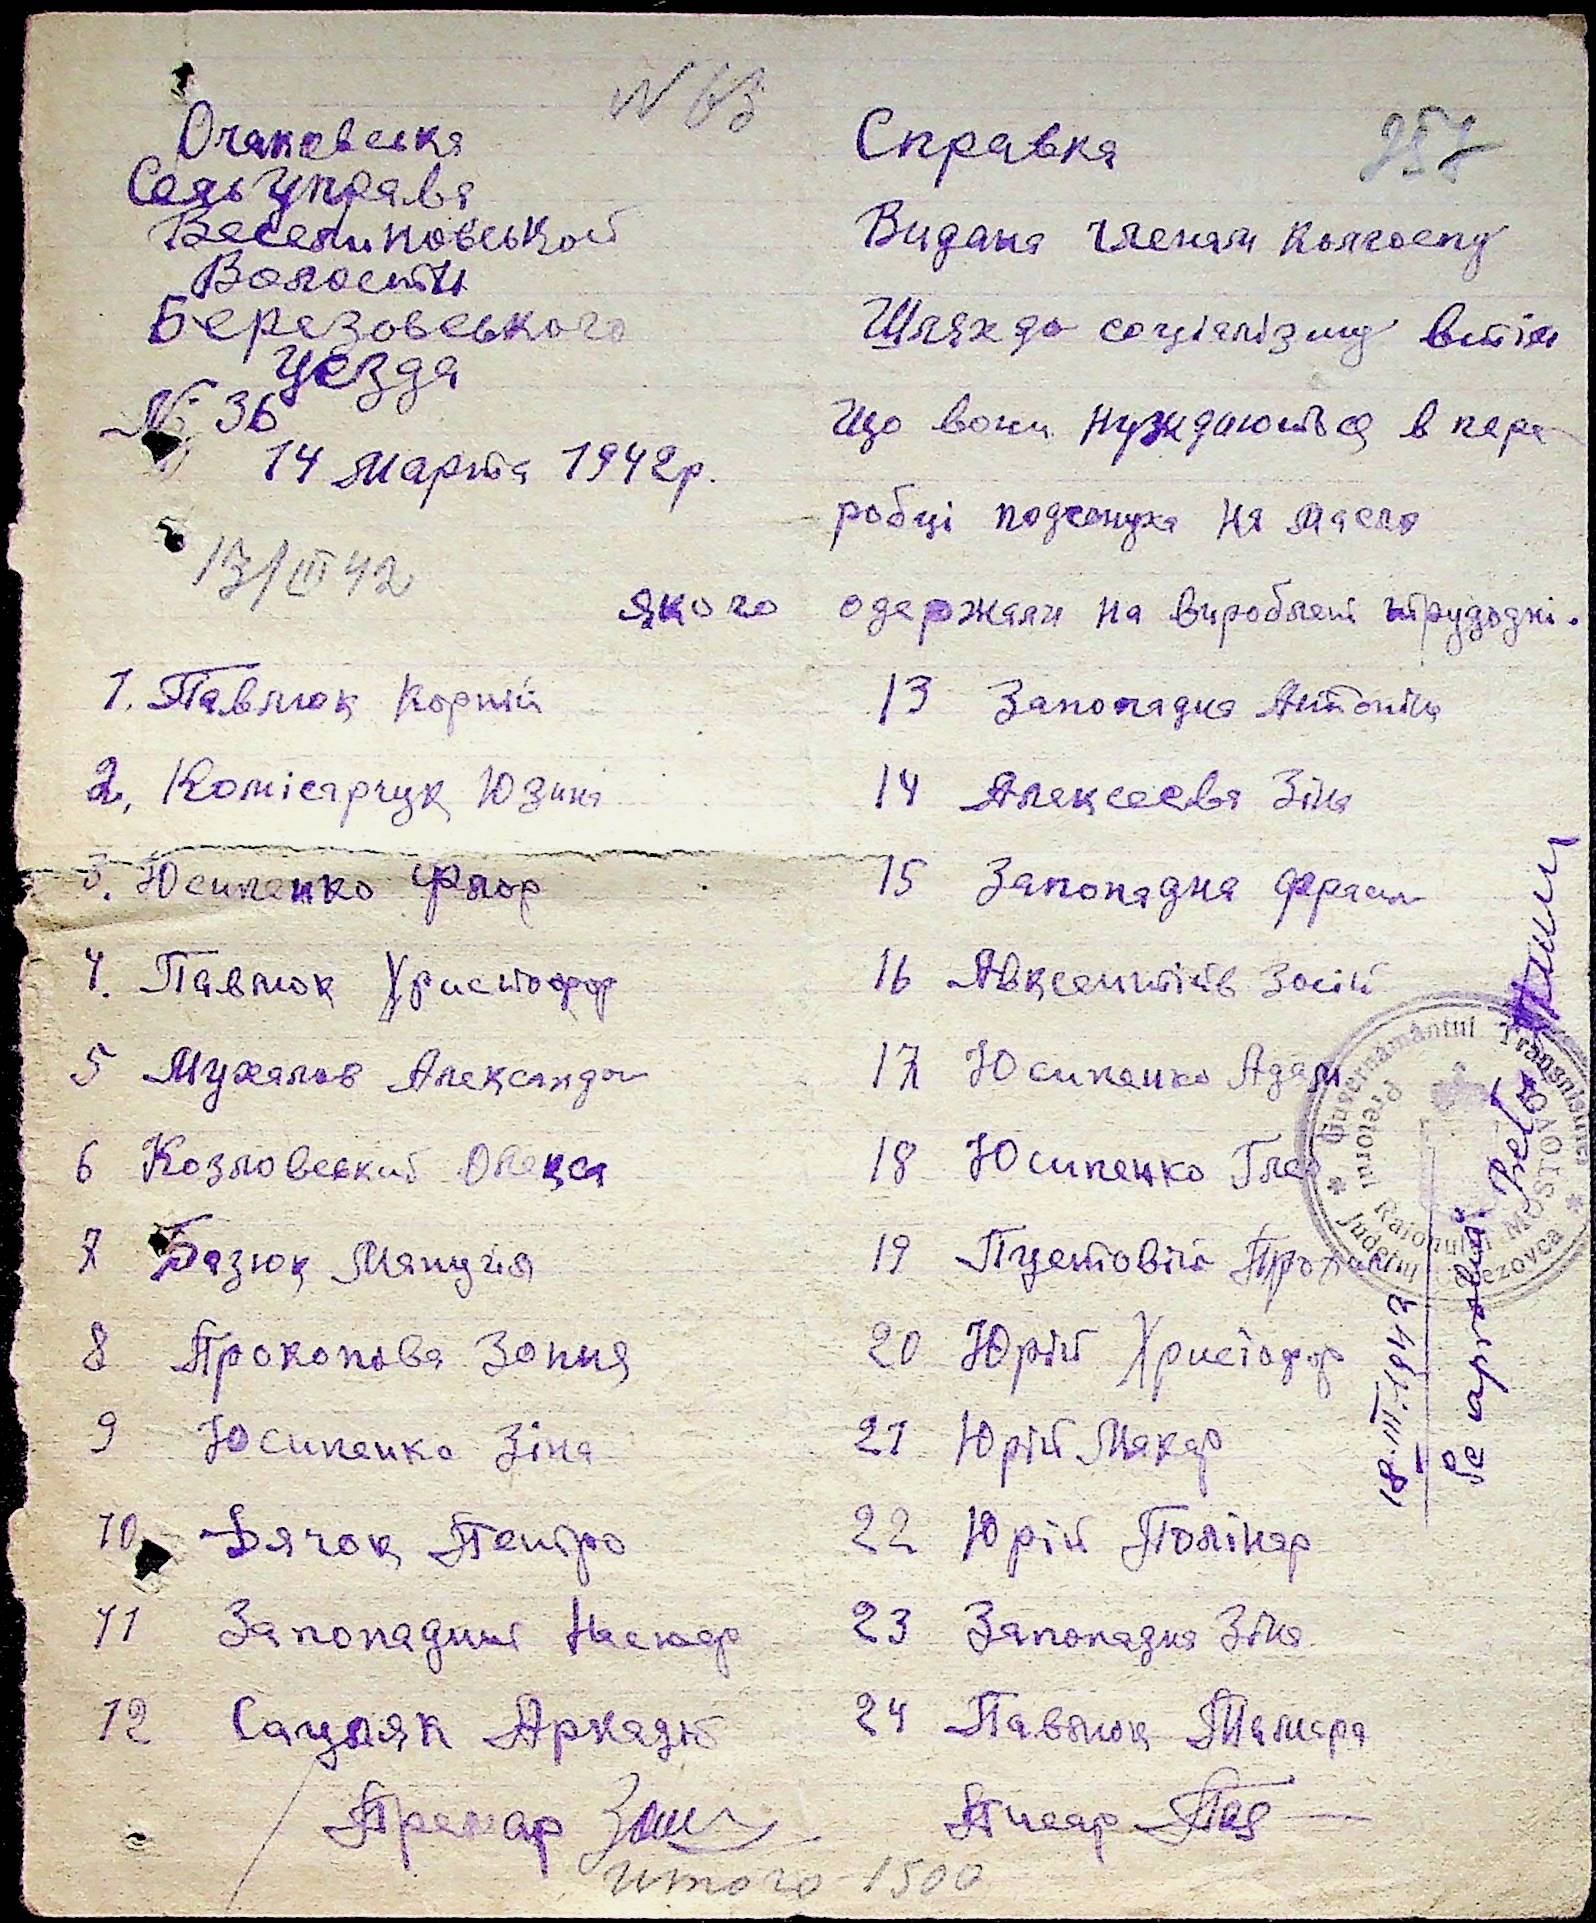 N 63
Очаковська
Сельуправа
Веселиновськой
Волости
Березовського
уезда
№ 36
14 марта 1942р.
13/III 42
Справка
257
Видана членам колгоспу
Шлях до соціалізму втім
що вони нуждаються в пере-
робці подсонуха на масло
якого одержали на вироблені трудодні.
1. Павлюк Корній
2. Комісарчук Юзина
3. Юсипенко Флор
4. Павлюк Христофор
5 Мухалов Александр
6 Козловський Олекса
7 Базюк Манугія
8 Прокопова Зопия
9 Юсипенко Зіна
10 Дячок Петро
11 Запопадний
12 Сацуляк Аркадій
13 Запопадна Антоніна
14 Алексеева Зіна
15 Запопадна
16 Авксентіїв Зосій
17 Юсипенко Адам
18 Юсипенко
19 Пустовій
20 Юрій Христофор
21 Юрій Макар
22 Юрій Полінар
23 Запопадна Зіна
24 Павлюк Тамара
Премар
Писар
итого 1500
18.III.1942
Guvernământul Transnistriei
Pretorul Raionului Mostovoi
Județul Berezovca